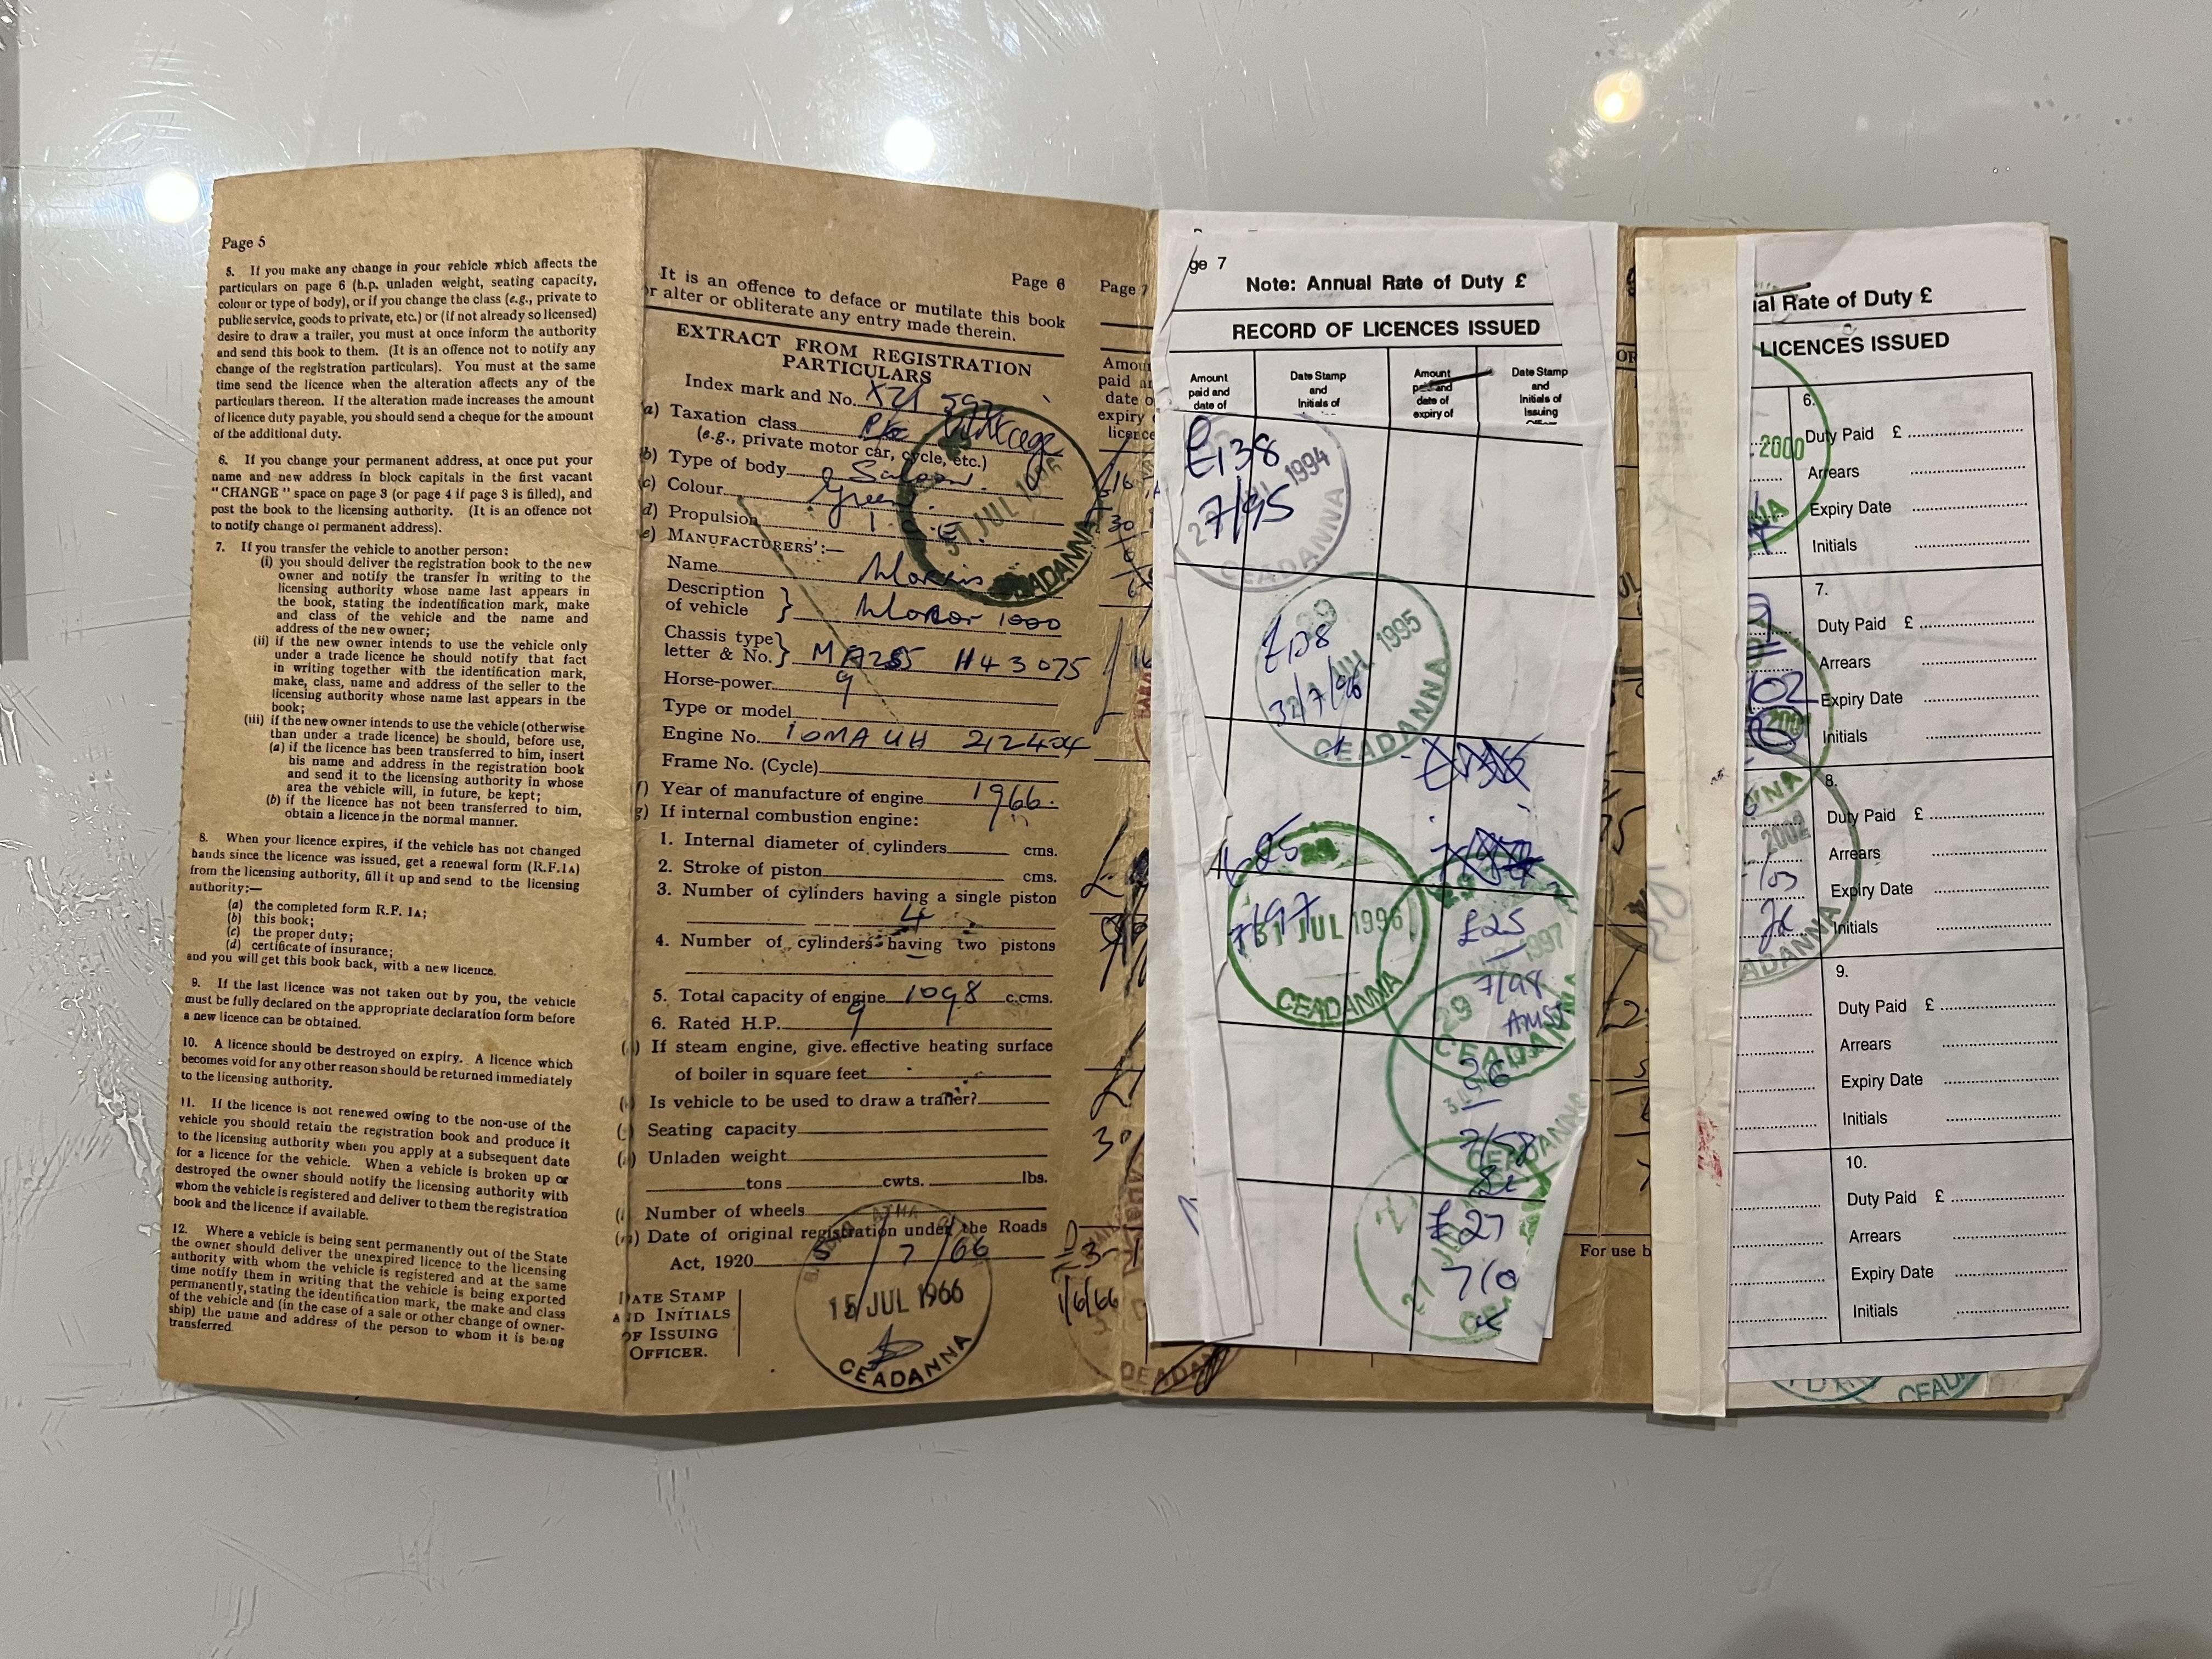 Page 5
5. If you make any change in your vehicle which affects the
particulars on page 6 (h.p. unladen weight, seating capacity,
colour or type of body), or if you change the class (e.g., private to
public service, goods to private, etc.) or (if not already so licensed)
desire to draw a trailer, you must at once inform the authority
and send this book to them. (It is an offence not to notify any
change of the registration particulars). You must at the same
time send the licence when the alteration affects any of the
particulars thereon. If the alteration made increases the amount
of licence duty payable, you should send a cheque for the amount
of the additional duty.
6. If you change your permanent address, at once put your
name and new address in block capitals in the first vacant
"CHANGE" space on page 3 (or page 4 if page 3 is filled), and
post the book to the licensing authority. (It is an offence not
to notify change of permanent address).
7. If you transfer the vehicle to another person:
(i) you should deliver the registration book to the new
owner and notify the transfer in writing to the
licensing authority whose name last appears in
the book, stating the indentification mark, make
and class of the vehicle and the name and
address of the new owner;
(ii) if the new owner intends to use the vehicle only
under a trade licence he should notify that fact
in writing together with the identification mark,
make, class, name and address of the seller to the
licensing authority whose name last appears in the
book;
(iii) if the new owner intends to use the vehicle (otherwise
than under a trade licence) he should, before use,
(a) if the licence has been transferred to him, insert
his name and address in the registration book
and send it to the licensing authority in whose
area the vehicle will, in future, be kept;
(b) if the licence has not been transferred to him,
obtain a licence in the normal manner.
8. When your licence expires, if the vehicle has not changed
hands since the licence was issued, get a renewal form (R.F.1A)
from the licensing authority, fill it up and send to the licensing
authority:—
(a) the completed form R.F. 1A;
(b) this book;
(c) the proper duty;
(d) certificate of insurance;
and you will get this book back, with a new licence.
9. If the last licence was not taken out by you, the vehicle
must be fully declared on the appropriate declaration form before
a new licence can be obtained.
10. A licence should be destroyed on expiry. A licence which
becomes void for any other reason should be returned immediately
to the licensing authority.
11. If the licence is not renewed owing to the non-use of the
vehicle you should retain the registration book and produce it
to the licensing authority when you apply at a subsequent date
for a licence for the vehicle. When a vehicle is broken up or
destroyed the owner should notify the licensing authority with
whom the vehicle is registered and deliver to them the registration
book and the licence if available.
12. Where a vehicle is being sent permanently out of the State
the owner should deliver the unexpired licence to the licensing
authority with whom the vehicle is registered and at the same
time notify them in writing that the vehicle is being exported
permanently, stating the identification mark, the make and class
of the vehicle and (in the case of a sale or other change of owner-
ship) the name and address of the person to whom it is being
transferred.
Page 6
It is an offence to deface or mutilate this book
or alter or obliterate any entry made therein.
EXTRACT FROM REGISTRATION
PARTICULARS
Index mark and No.
(a) Taxation class
(e.g., private motor car, cycle, etc.)
(b) Type of body Saloon
(c) Colour Green
(d) Propulsion I.C.E.
(e) MANUFACTURERS':—
Name Morris
Description
of vehicle } Minor 1000
Chassis type
letter & No. } MA2S5 1143075
Horse-power 9
Type or model
Engine No. 10MAUH 212404
Frame No. (Cycle)
Year of manufacture of engine 1966
If internal combustion engine:
1. Internal diameter of cylinders cms.
2. Stroke of piston cms.
3. Number of cylinders having a single piston
4
4. Number of cylinders having two pistons
5. Total capacity of engine 1098 c.cms.
6. Rated H.P. 9
If steam engine, give effective heating surface
of boiler in square feet
Is vehicle to be used to draw a trailer?
Seating capacity
Unladen weight
tons cwts. lbs.
Number of wheels
Date of original registration under the Roads
Act, 1920 5/7/66
DATE STAMP
AND INITIALS
OF ISSUING
OFFICER.
15 JUL 1966
CEADANNA
31 JUL 1996
CEADANNA
Page 7
ge 7
Note: Annual Rate of Duty £
RECORD OF LICENCES ISSUED
Amount
paid and
date of
Date Stamp
and
Initials of
Amount
paid and
date of
expiry of
Date Stamp
and
Initials of
Issuing
£138
7/95
1994
CEADANNA
1995
CEADANNA
£25
7/97
31 JUL 1996
CEADANNA
£25
1997
7/98
29
CEADANNA
£27
7/0
27
For use b
ial Rate of Duty £
LICENCES ISSUED
2000
6.
Duty Paid £
Arrears
Expiry Date
Initials
7.
Duty Paid £
Arrears
Expiry Date
Initials
8.
2002
Duty Paid £
Arrears
Expiry Date
Initials
9.
Duty Paid £
Arrears
Expiry Date
Initials
10.
Duty Paid £
Arrears
Expiry Date
Initials